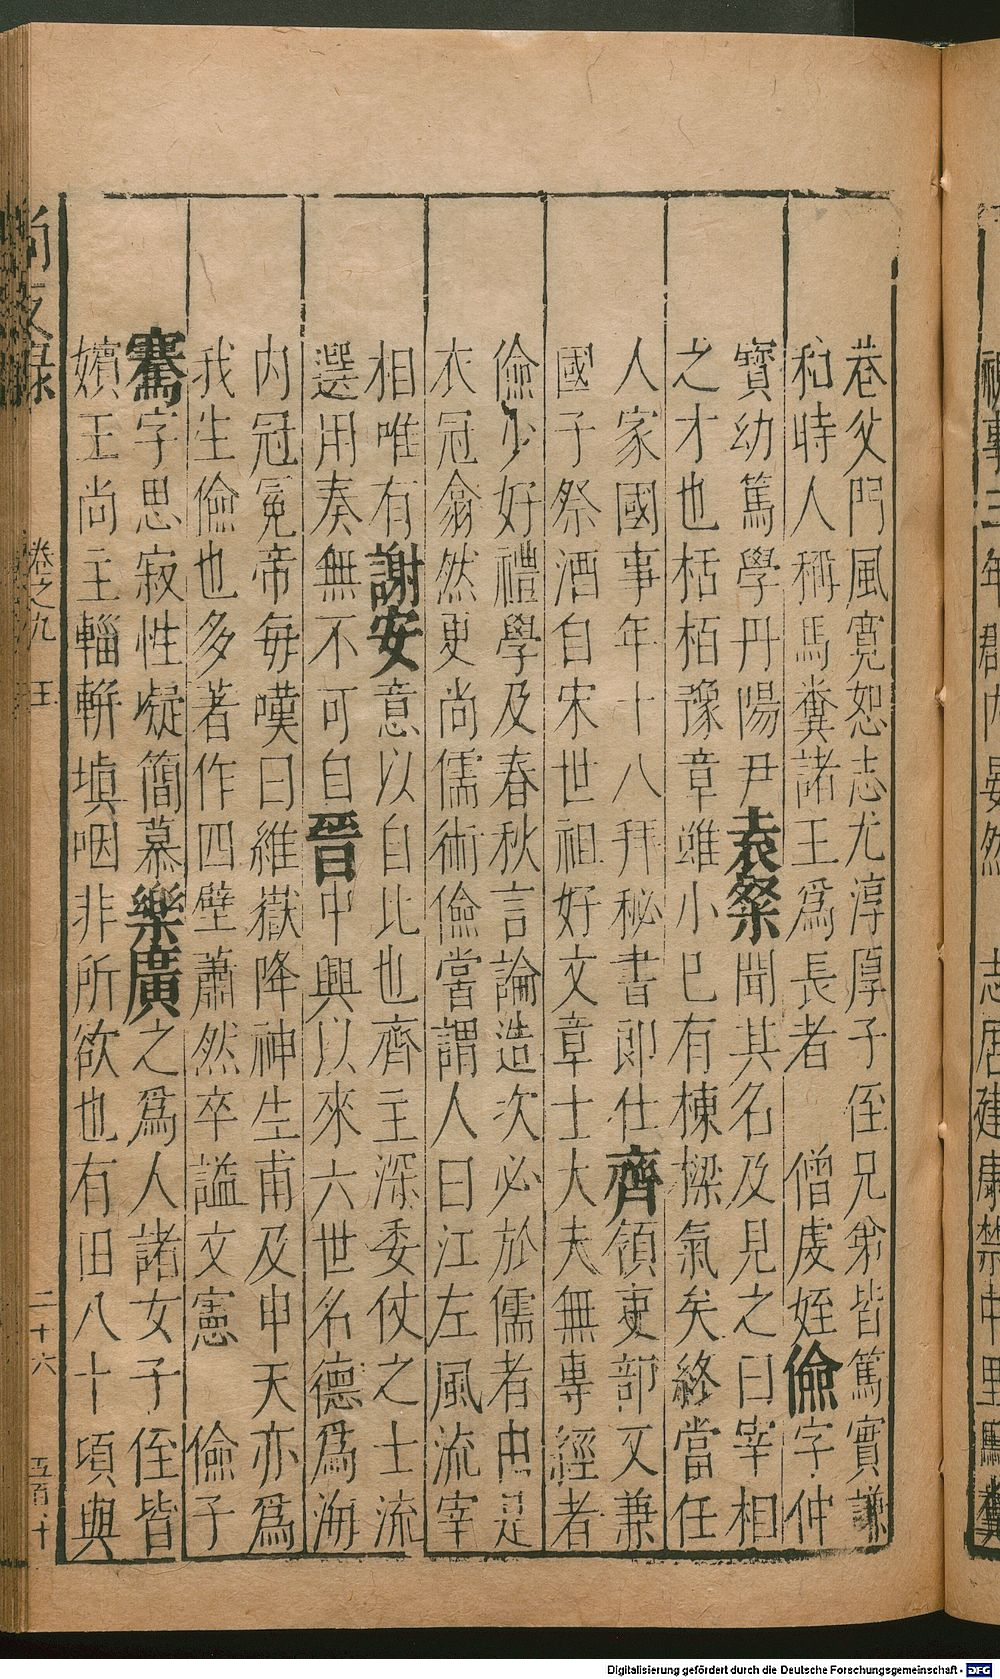 巷父門風寛恕志尤淳厚子侄兄弟皆篤實謙
和時人稱馬糞諸王爲長者　僧虔姪儉字仲
寶幼篤學丹陽尹袁粲聞其名及見之曰宰相
之才也栝栢豫章雖小已有棟樑氣矣終當任
人家國事年十八拜秘書郎仕齊領吏部又兼
國子祭酒自宋世祖好文章士大夫無專經者
儉少好禮學及春秋言論造次必於儒者由是
衣冠翕然更尚儒術儉嘗謂人曰江左風流宰
相唯有謝安意以自比也齊主深委仗之士流
選用奏無不可自晉中興以來六世名德爲海
内冠冕帝每嘆曰維嶽降神生甫及申天亦爲
我生儉也多著作四壁蕭然卒謚文憲　儉子
騫字思寂性凝簡慕樂廣之爲人諸女子侄皆
嬪王尚主輜軿塡咽非所欲也有田八十頃與
尚友録　卷之九　王　二十六　五百十